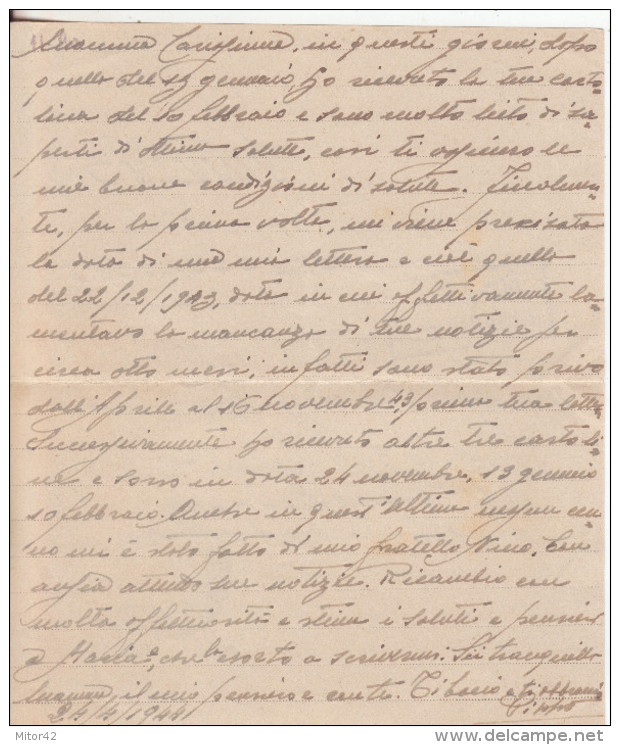 Mamma Carissima, in questi giorni, dopo
quella del 13 gennaio, ho ricevuto la tua carto=
lina del 10 febbraio e sono molto lieto di sa=
perti di ottima salute, così ti assicuro le
mie buone condizioni di salute. Finalmen=
te, per la prima volta, mi viene precisata
la data di una mia lettera e cioè quella
del 22/12/1943, data in cui effettivamente la=
mentavo la mancanza di tue notizie per
circa otto mesi, infatti sono stato privo
dall'Aprile al 16 novembre 43, prima tua lettera
Successivamente ho ricevuto altre tre cartoli=
ne e sono in data 24 novembre, 13 gennaio
10 febbraio. Anche in quest'ultima nessun cen=
no mi è stato fatto di mio fratello Nino. Con
ansia attendo sue notizie. Ricambio con
molta affettuosità e stima i saluti e pensieri
a Maria, che esorto a scrivermi. Sii tranquilla
Mamma, il mio pensiero è con te. Ti bacio
Pippo
24/4/1944
Mitor42
delcampe.net